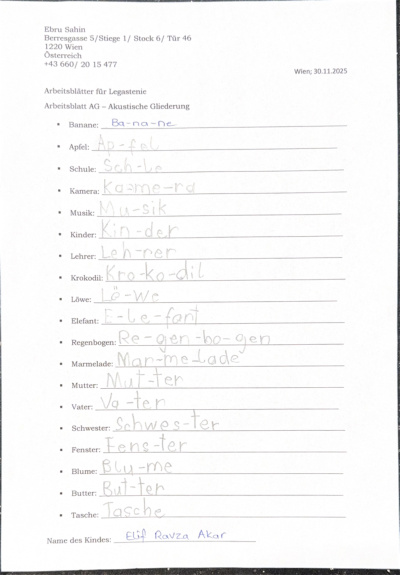 Ebru Sahin
Berresgasse 5/Stiege 1/ Stock 6/ Tür 46
1220 Wien
Österreich
+43 660/ 20 15 477
Wien; 30.11.2025
Arbeitsblätter für Legastenie
Arbeitsblatt AG – Akustische Gliederung
• Banane: Ba-na-ne
• Apfel: Ap-fel
• Schule: Sch-le
• Kamera: Ka-me-ra
• Musik: Mu-sik
• Kinder: Kin-der
• Lehrer: Leh-rer
• Krokodil: Kro-ko-dil
• Löwe: Lö-we
• Elefant: E-le-fant
• Regenbogen: Re-gen-bo-gen
• Marmelade: Mar-me-lade
• Mutter: Mut-ter
• Vater: Va-ter
• Schwester: Schwes-ter
• Fenster: Fens-ter
• Blume: Blu-me
• Butter: But-ter
• Tasche: Tasche
Name des Kindes: Elif Ravza Akar